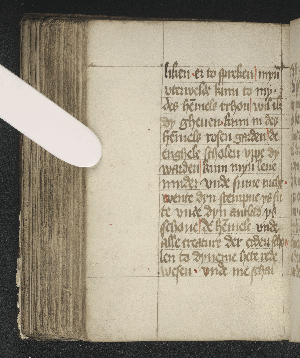 liken er to spreken myn
vterwelde kum to my
des hemels thron wil ik
dy gheuen kum in des
hemels rosen garden de
enghele scholen vppe dy
warden kum myn leue
moder vnde sume nicht
wente dyn stempne ys su
te vnde dyn antlad ys
schone des hemels vnde
alle creatur der erden scho
len to dyneme bete rede
wesen vnde me schal